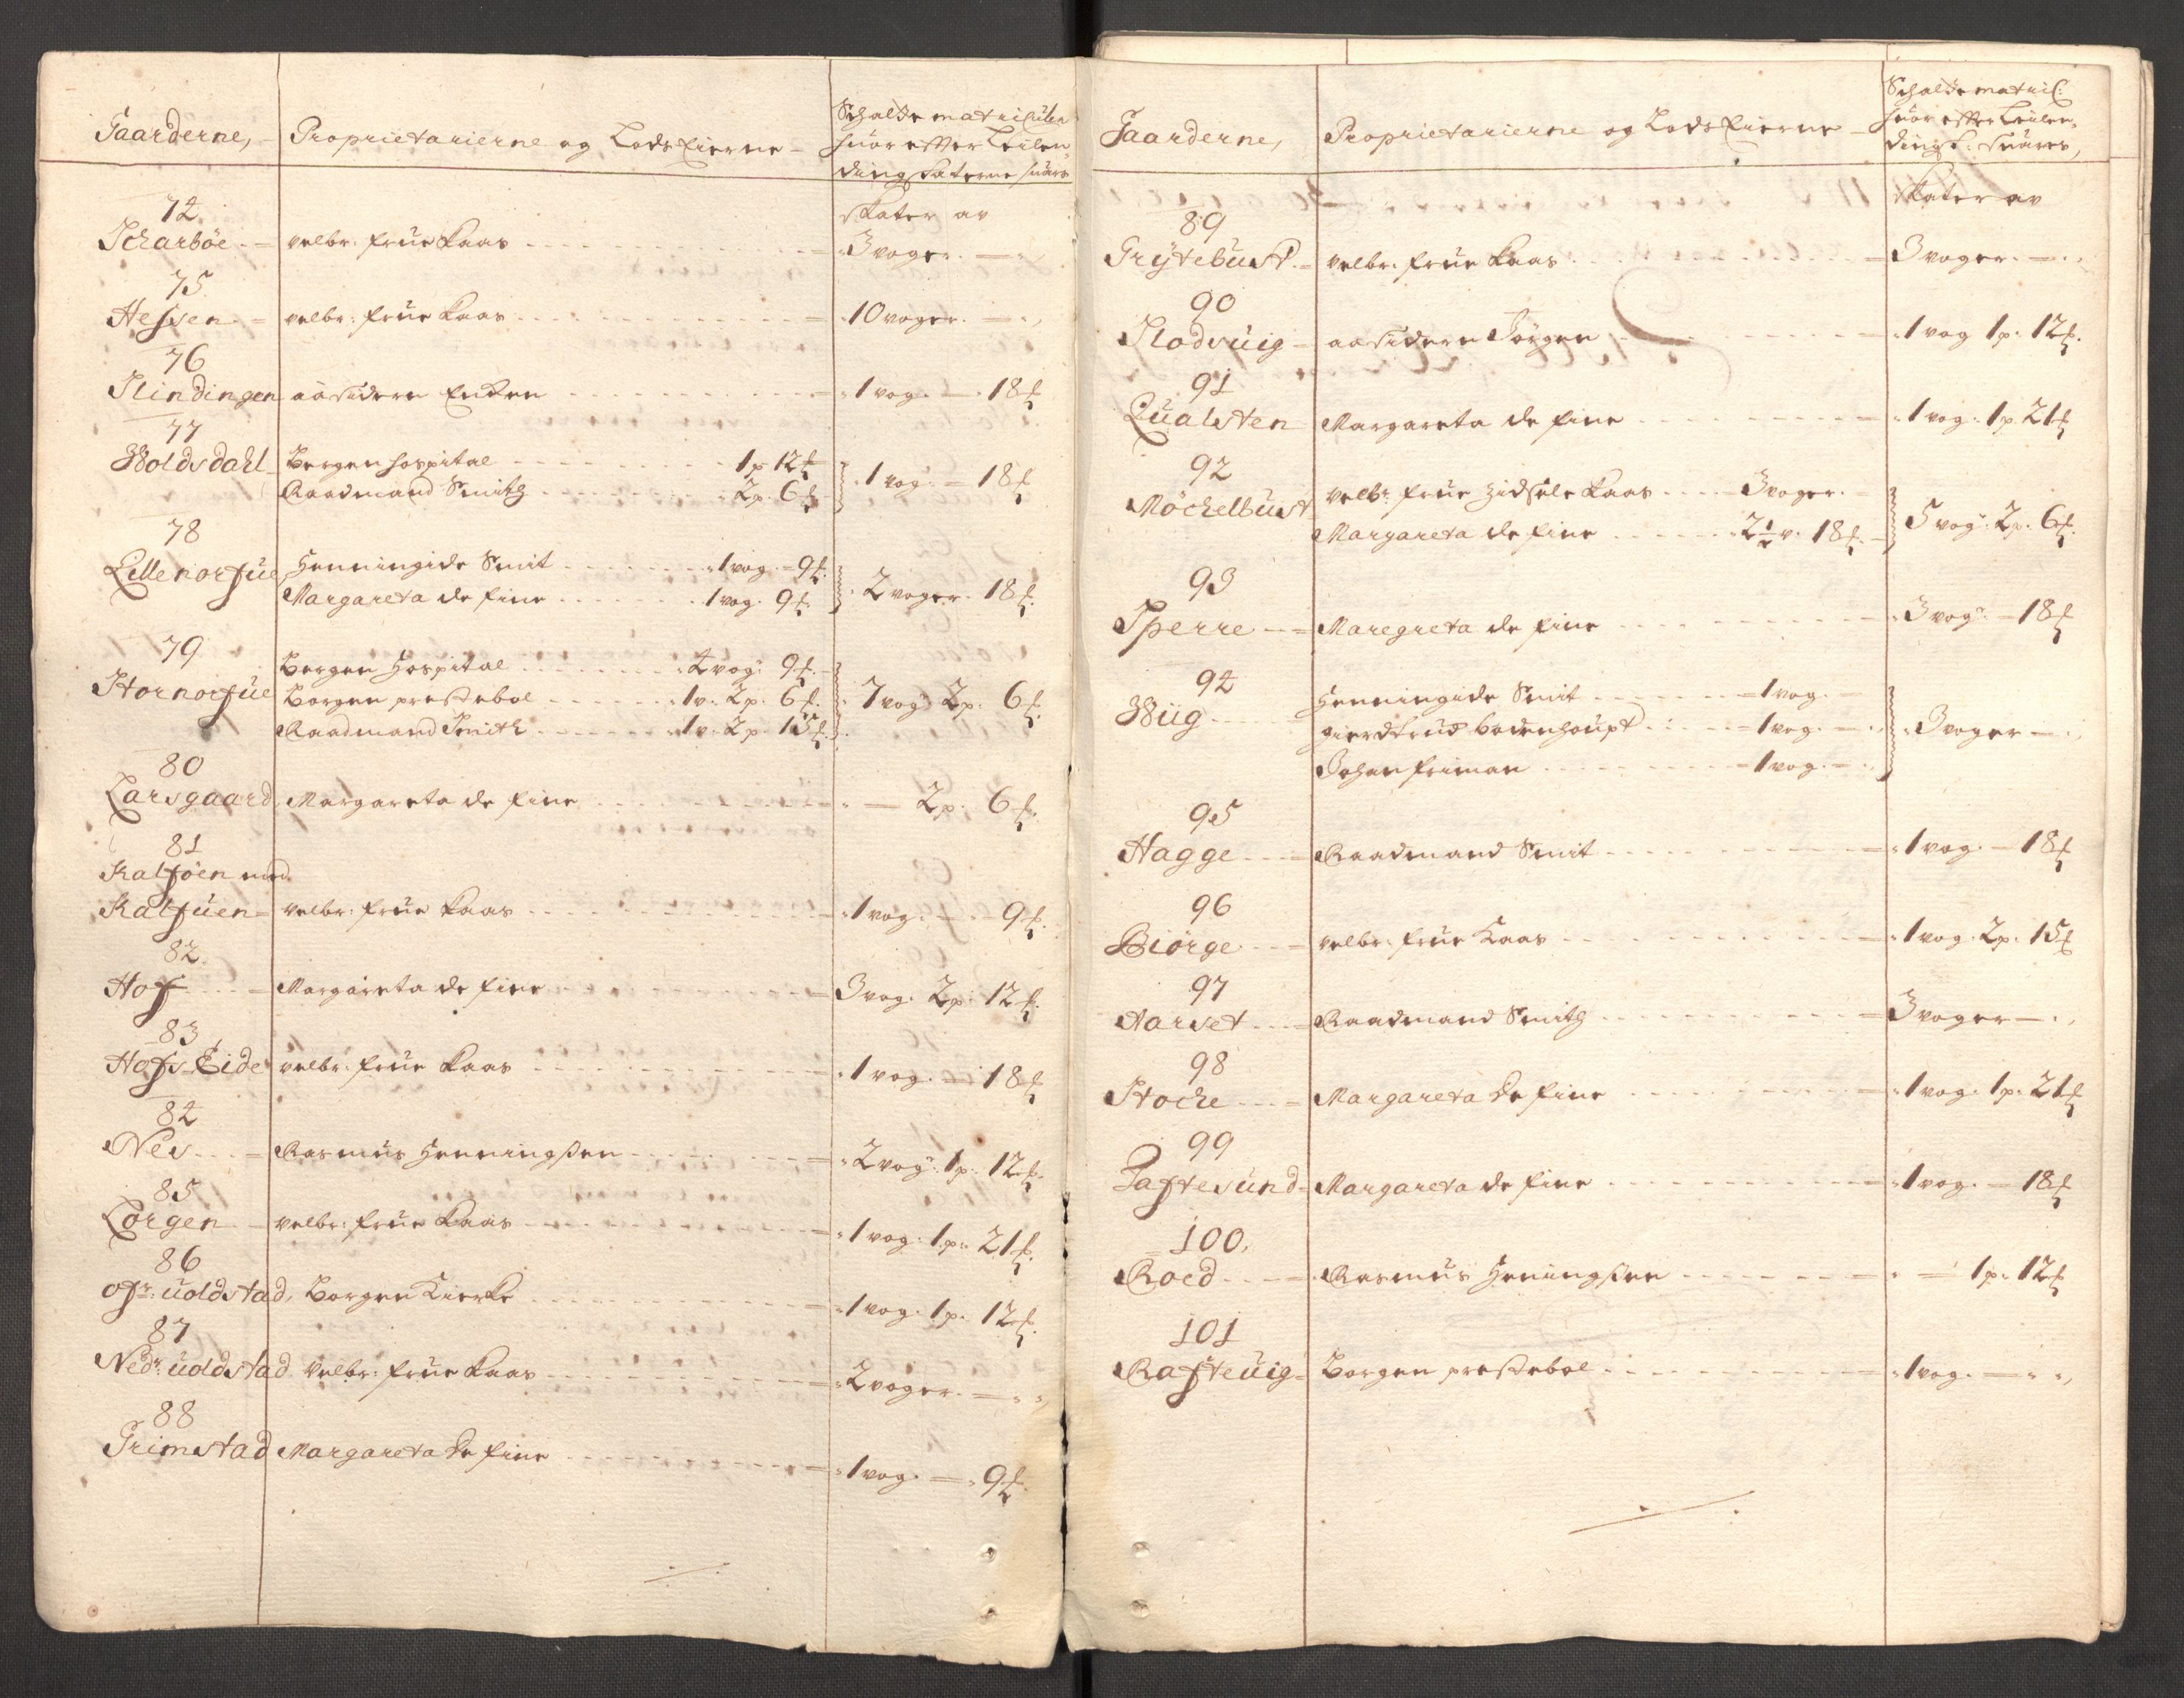 Gaarderne,
Proprietarierne og Lodseierne
Schatte matriculen
huor effter Leilen
dingsskaterne suars
74
Scharbøe velbr: frue Kaas
skater av
3 voger.
75
Hessen velbr: frue Kaas 10 voger.
76
Slindingen aasidere Encken 1 vog. 18 ℔
77
Woldsdahl Bergen hospital 1 p 12 ℔
Raadmand Smith 2 p. 6 ℔ 1 vog. 18 ℔
78
Lille norfue Henningide Smit 1 vog. 9 ℔
Margareta de fine 1 vog. 9 ℔. 2 voger. 18 ℔.
79
Stor norfue Bergen Hospital 4 vog: 9 ℔.
Borgen prestebol 1 v. 2 p. 6 ℔. 7 vog: 2 p. 6 ℔.
Raadmand Smith 1 v. 2 p. 15 ℔.
80
Larsgaard Margareta de fine 2 p. 6 ℔.
81
Kalføen med
Kalfuen velbr: frue Kaas 1 vog. 9 ℔.
82
Hof Margareta de fine 3 vog. 2 p: 12 ℔.
83
Hofs Eide velbr: frue Kaas 1 vog. 18 ℔
84
Nes Rasmus Henningsen 2 vog: 1 p. 12 ℔.
85
Lorgen velbr: frue Kaas 1 vog. 1 p. 21 ℔.
86
Ofr: uoldstad, Borgen Kierke 1 vog. 1 p. 12 ℔.
87
Nedr: uoldstad velbr: frue Kaas 2 voger.
88
Grimstad Margareta de fine 1 vog. 9 ℔.
Gaarderne,
Proprietarierne og Lodseierne
Schatte matricl:
huor effter Leilen
dings: suares,
89
skater av
Grytebust velbr. frue Kaas 3 voger.
90
Flodvuig aasidere Jørgen 1 vog 1 p. 12 ℔.
91
Qualsten Margareta de fine 1 vog: 1 p 21 ℔
92
Møchelbust velbr: frue Zidsele Kaas 3 voger.
Margareta de fine 2½ v. 18 ℔. 5 vog: 2 p. 6 ℔.
93
Sperre Maregreta de fine 3 vog: 18 ℔
94
Wiig Henningide Smit 1 vog.
gierdtrud bodenhoupt 1 vog. 3 voger
Johan friman 1 vog.
95
Hagge Raadmand Smit 1 vog. 18 ℔
96
Biørge velbr. frue Kaas 1 vog. 2 p. 15 ℔
97
Aarset Raadmand Smith 3 voger
98
Stoche Margareta de fine 1 vog. 1 p. 21 ℔
99
Taftesund Margareta de fine 1 vog. 18 ℔
100.
Roed Rasmus Heningsen 1 p. 12 ℔
101
Rafteuig Borgen prestebol 1 vog.